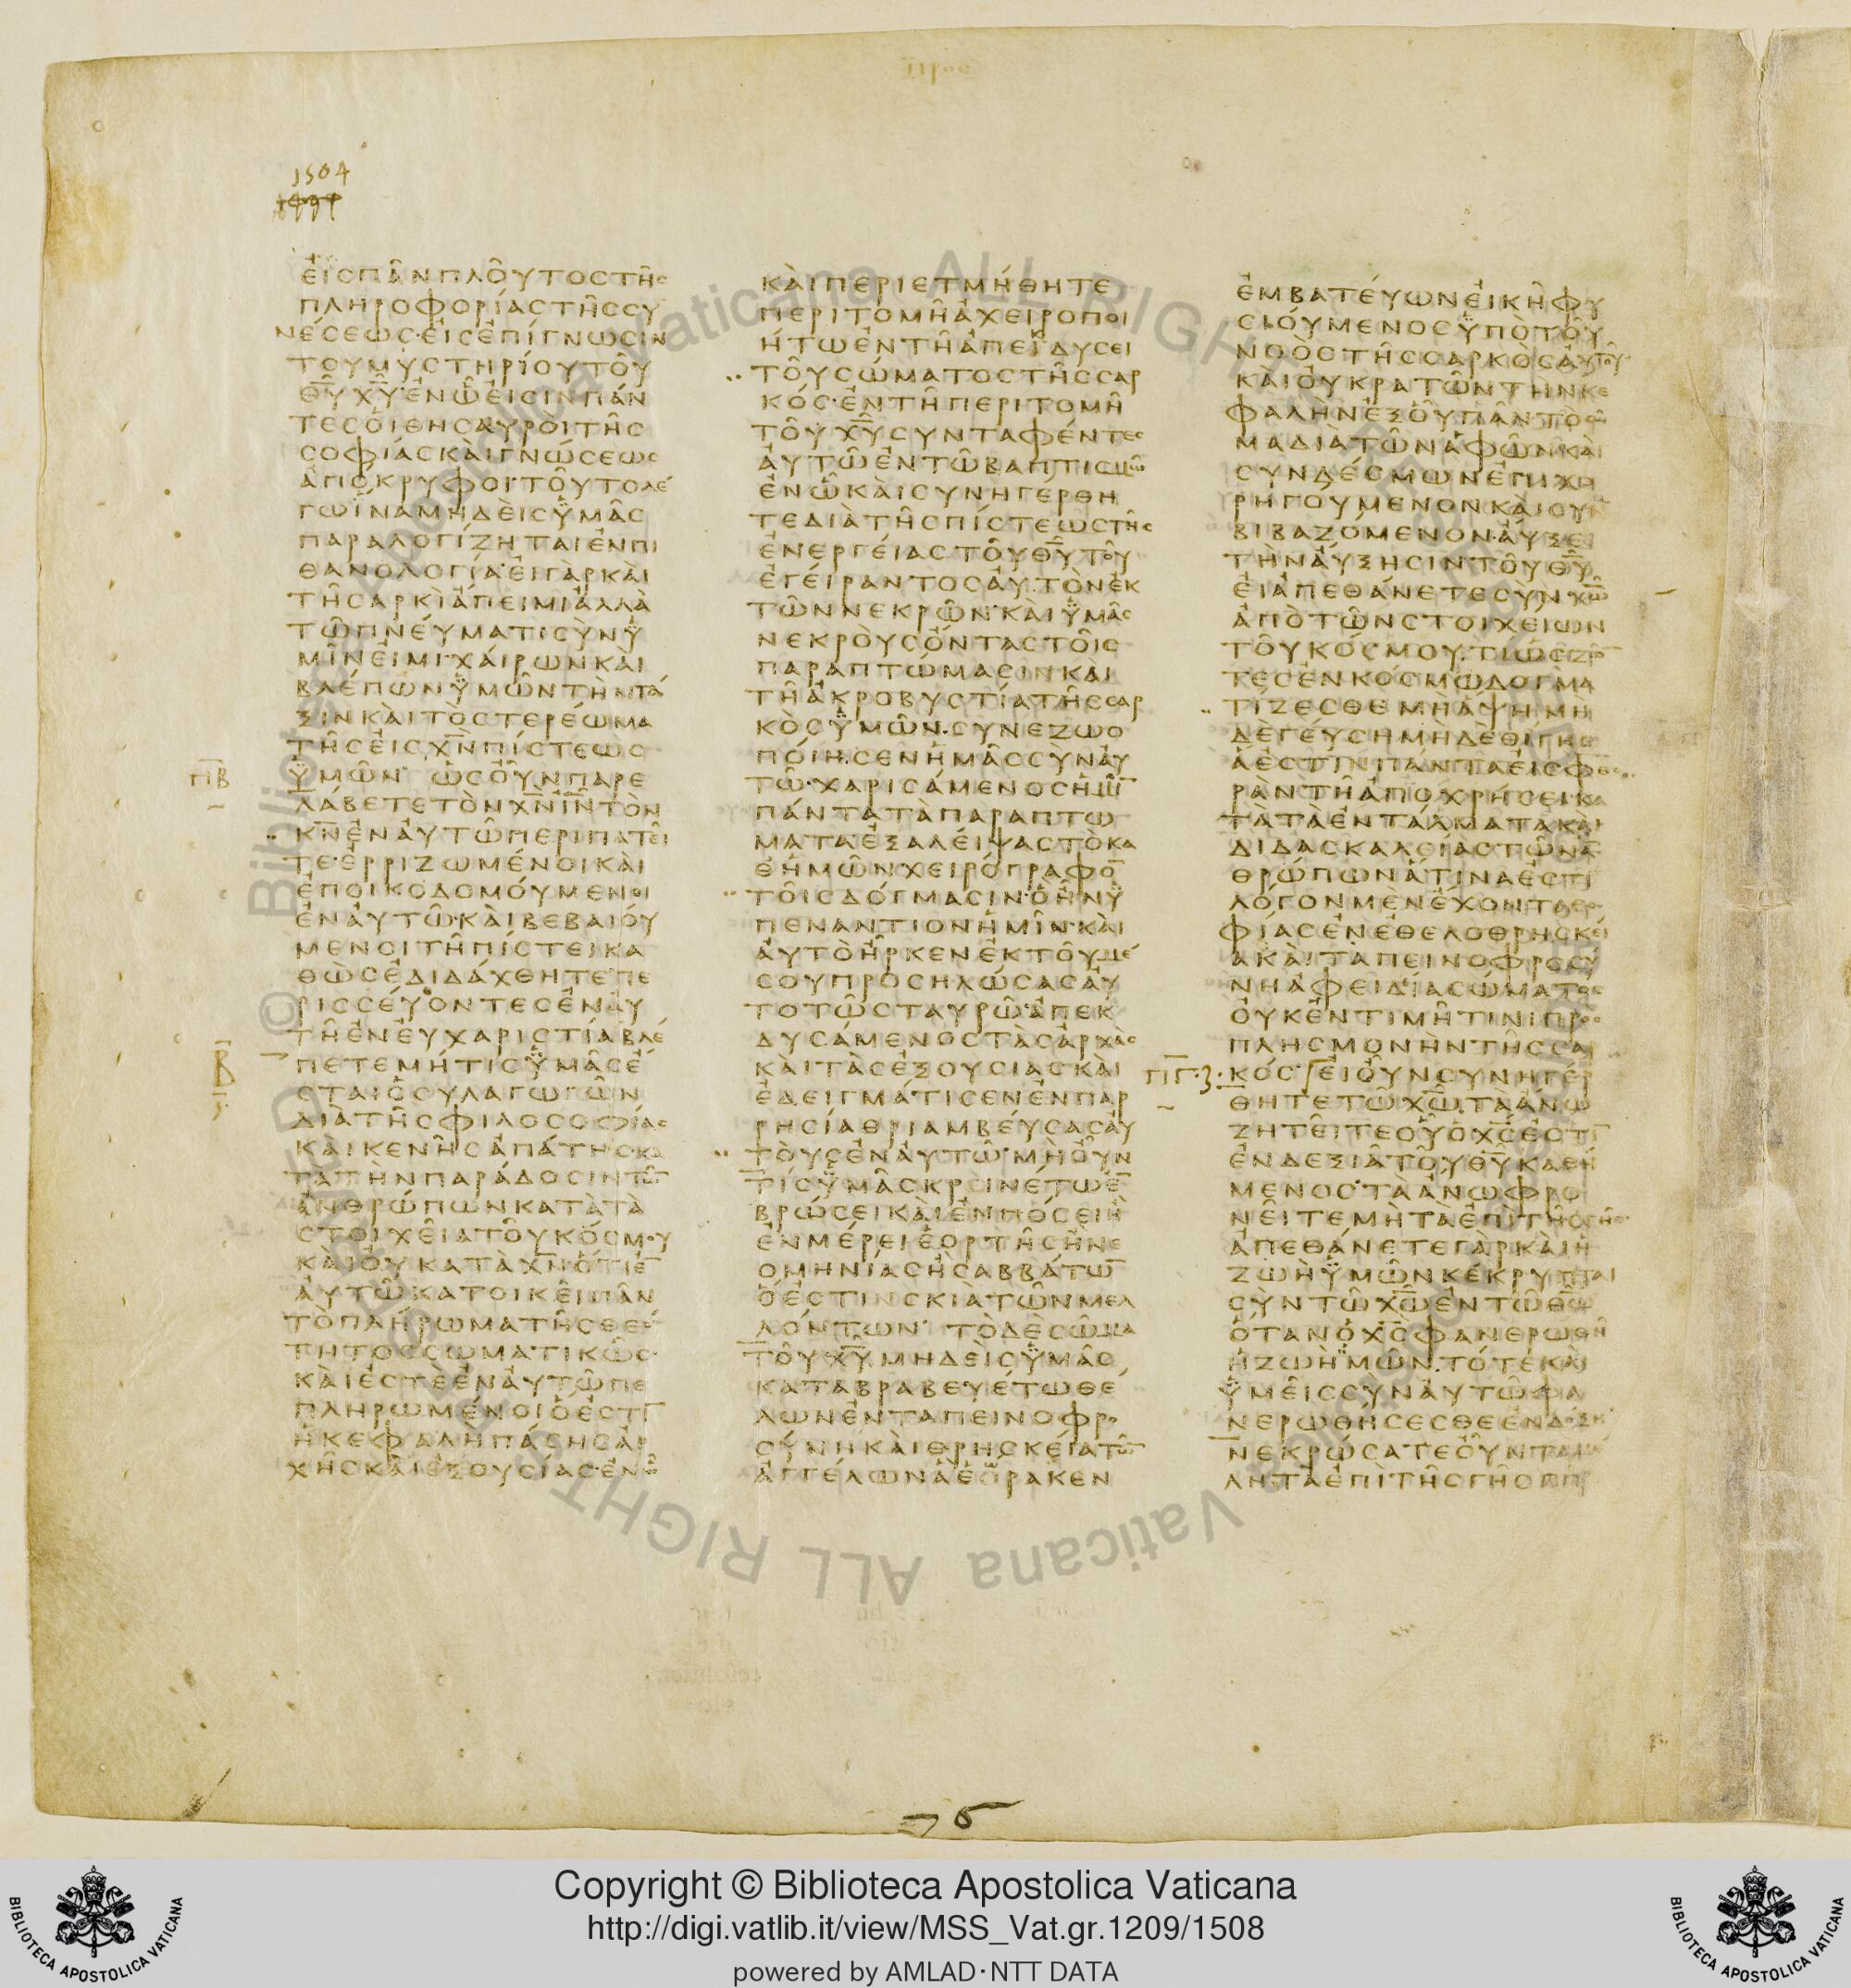 1504
ΕΙΣΠΑΝΠΛΟΥΤΟΣΤΗΣ
ΠΛΗΡΟΦΟΡΙΑΣΤΗΣΣΥ
ΝΕΣΕΩΣ·ΕΙΣΕΠΙΓΝΩΣΙΝ
ΤΟΥΜΥΣΤΗΡΙΟΥΤΟΥ
ΘΥΧΥ·ΕΝΩΕΙΣΙΝΠΑΝ
ΤΕΣΟΙΘΗΣΑΥΡΟΙΤΗΣ
ΣΟΦΙΑΣΚΑΙΓΝΩΣΕΩΣ
ΑΠΟΚΡΥΦΟΙ·ΤΟΥΤΟΛΕ
ΓΩΪΝΑΜΗΔΕΙΣΫΜΑΣ
ΠΑΡΑΛΟΓΙΖΗΤΑΙΕΝΠΙ
ΘΑΝΟΛΟΓΙΑ·ΕΙΓΑΡΚΑΙ
ΤΗΣΑΡΚΙΑΠΕΙΜΙΑΛΛΑ
ΤΩΠΝΕΥΜΑΤΙΣΥΝΫ
ΜΙΝΕΙΜΙ·ΧΑΙΡΩΝΚΑΙ
ΒΛΕΠΩΝΫΜΩΝΤΗΝΤΑ
ΞΙΝΚΑΙΤΟΣΤΕΡΕΩΜΑ
ΤΗΣΕΙΣΧΝΠΙΣΤΕΩΣ
ΠΒ ΫΜΩΝ· ΩΣΟΥΝΠΑΡΕ
ΛΑΒΕΤΕΤΟΝΧΝΙΝΤΟΝ
ΚΝΕΝΑΥΤΩΠΕΡΙΠΑΤΕΙ
ΤΕ·ΕΡΡΙΖΩΜΕΝΟΙΚΑΙ
ΕΠΟΙΚΟΔΟΜΟΥΜΕΝΟΙ
ΕΝΑΥΤΩ·ΚΑΙΒΕΒΑΙΟΥ
ΜΕΝΟΙΤΗΠΙΣΤΕΙΚΑ
ΘΩΣΕΔΙΔΑΧΘΗΤΕΠΕ
ΡΙΣΣΕΥΟΝΤΕΣΕΝΑΥ
ΤΗΕΝΕΥΧΑΡΙΣΤΙΑΒΛΕ
Β ΠΕΤΕΜΗΤΙΣΫΜΑΣΕ
ΣΤΑΙΟΣΥΛΑΓΩΓΩΝ
ΔΙΑΤΗΣΦΙΛΟΣΟΦΙΑΣ
ΚΑΙΚΕΝΗΣΑΠΑΤΗΣ·ΚΑ
ΤΑΤΗΝΠΑΡΑΔΟΣΙΝΤΩ̅
ΑΝΘΡΩΠΩΝΚΑΤΑΤΑ
ΣΤΟΙΧΕΙΑΤΟΥΚΟΣΜΟΥ
ΚΑΙΟΥΚΑΤΑΧΝΟΤΙΕ̅
ΑΥΤΩΚΑΤΟΙΚΕΙΠΑΝ
ΤΟΠΛΗΡΩΜΑΤΗΣΘΕΟ
ΤΗΤΟΣΣΩΜΑΤΙΚΩΣ·
ΚΑΙΕΣΤΕΕΝΑΥΤΩΠΕ
ΠΛΗΡΩΜΕΝΟΙΟΕΣΤΙ̅
ΗΚΕΦΑΛΗΠΑΣΗΣΑΡ
ΧΗΣΚΑΙΕΞΟΥΣΙΑΣ·ΕΝΩ
ΚΑΙΠΕΡΙΕΤΜΗΘΗΤΕ
ΠΕΡΙΤΟΜΗΑΧΕΙΡΟΠΟΙ
ΗΤΩΕΝΤΗΑΠΕΚΔΥΣΕΙ
ΤΟΥΣΩΜΑΤΟΣΤΗΣΣΑΡ
ΚΟΣ·ΕΝΤΗΠΕΡΙΤΟΜΗ
ΤΟΥΧΥΣΥΝΤΑΦΕΝΤΕΣ
ΑΥΤΩΕΝΤΩΒΑΠΤΙΣΜΩ
ΕΝΩΚΑΙΣΥΝΗΓΕΡΘΗ
ΤΕΔΙΑΤΗΣΠΙΣΤΕΩΣΤΗΣ
ΕΝΕΡΓΕΙΑΣΤΟΥΘΥΤΟΥ
ΕΓΕΙΡΑΝΤΟΣΑΥΤΟΝΕΚ
ΤΩΝΝΕΚΡΩΝ·ΚΑΙΫΜΑΣ
ΝΕΚΡΟΥΣΟΝΤΑΣΤΟΙΣ
ΠΑΡΑΠΤΩΜΑΣΙΝΚΑΙ
ΤΗΑΚΡΟΒΥΣΤΙΑΤΗΣΣΑΡ
ΚΟΣΫΜΩΝ·ΣΥΝΕΖΩΟ
ΠΟΙΗΣΕΝΗΜΑΣΣΥΝΑΥ
ΤΩ·ΧΑΡΙΣΑΜΕΝΟΣΗΜΙ̅
ΠΑΝΤΑΤΑΠΑΡΑΠΤΩ
ΜΑΤΑΕΞΑΛΕΙΨΑΣΤΟΚΑ
ΘΗΜΩΝΧΕΙΡΟΓΡΑΦΟ̅
ΤΟΙΣΔΟΓΜΑΣΙΝ·ΟΗΝΫ
ΠΕΝΑΝΤΙΟΝΗΜΙΝ·ΚΑΙ
ΑΥΤΟΗΡΚΕΝΕΚΤΟΥΜΕ
ΣΟΥΠΡΟΣΗΛΩΣΑΣΑΥ
ΤΟΤΩΣΤΑΥΡΩ·ΑΠΕΚ
ΔΥΣΑΜΕΝΟΣΤΑΣΑΡΧΑΣ
ΚΑΙΤΑΣΕΞΟΥΣΙΑΣΚΑΙ
ΕΔΕΙΓΜΑΤΙΣΕΝΕΝΠΑΡ
ΡΗΣΙΑΘΡΙΑΜΒΕΥΣΑΣΑΥ
ΤΟΥΣΕΝΑΥΤΩ·ΜΗΟΥΝ
ΤΙΣΫΜΑΣΚΡΙΝΕΤΩΕ̅
ΒΡΩΣΕΙΚΑΙΕΝΠΟΣΕΙΗ
ΕΝΜΕΡΕΙΕΟΡΤΗΣΗΝΕ
ΟΜΗΝΙΑΣΗΣΑΒΒΑΤΩ̅
ΟΕΣΤΙΝΣΚΙΑΤΩΝΜΕΛ
ΛΟΝΤΩΝ· ΤΟΔΕΣΩΜΑ
ΤΟΥΧΥΜΗΔΕΙΣΫΜΑΣ
ΚΑΤΑΒΡΑΒΕΥΕΤΩΘΕ
ΛΩΝΕΝΤΑΠΕΙΝΟΦΡΟ
ΣΥΝΗΚΑΙΘΡΗΣΚΕΙΑΤΩ̅
ΑΓΓΕΛΩΝΑΕΟΡΑΚΕΝ
ΕΜΒΑΤΕΥΩΝΕΙΚΗΦΥ
ΣΙΟΥΜΕΝΟΣΫΠΟΤΟΥ
ΝΟΟΣΤΗΣΣΑΡΚΟΣΑΥΤΟΥ·
ΚΑΙΟΥΚΡΑΤΩΝΤΗΝΚΕ
ΦΑΛΗΝΕΞΟΥΠΑΝΤΟΣΩ
ΜΑΔΙΑΤΩΝΑΦΩΝΚΑΙ
ΣΥΝΔΕΣΜΩΝΕΠΙΧΟ
ΡΗΓΟΥΜΕΝΟΝΚΑΙΣΥΝ
ΒΙΒΑΖΟΜΕΝΟΝ·ΑΥΞΕΙ
ΤΗΝΑΥΞΗΣΙΝΤΟΥΘΥ
ΕΙΑΠΕΘΑΝΕΤΕΣΥΝΧΩ
ΑΠΟΤΩΝΣΤΟΙΧΕΙΩΝ
ΤΟΥΚΟΣΜΟΥ·ΤΙΩΣΖΩ̅
ΤΕΣΕΝΚΟΣΜΩΔΟΓΜΑ
ΤΙΖΕΣΘΕΜΗΑΨΗΜΗ
ΔΕΓΕΥΣΗΜΗΔΕΘΙΓΗΣ
ΑΕΣΤΙΝΠΑΝΤΑΕΙΣΦΘΟ
ΡΑΝΤΗΑΠΟΧΡΗΣΕΙ·ΚΑ
ΤΑΤΑΕΝΤΑΛΜΑΤΑΚΑΙ
ΔΙΔΑΣΚΑΛΕΙΑΣΤΩΝΑ̅
ΘΡΩΠΩΝΑΤΙΝΑΕΣΤΙ̅
ΛΟΓΟΝΜΕΝΕΧΟΝΤΑΣΟ
ΦΙΑΣΕΝΕΘΕΛΟΘΡΗΣΚΕΙ
ΑΚΑΙΤΑΠΕΙΝΟΦΡΟΣΥ
ΝΗΑΦΕΙΔΙΑΣΩΜΑΤΟΣ
ΟΥΚΕΝΤΙΜΗΤΙΝΙΠΡΟΣ
ΠΛΗΣΜΟΝΗΝΤΗΣΣΑΡ
ΠΓ ΚΟΣ·ΕΙΟΥΝΣΥΝΗΓΕΡ
ΘΗΤΕΤΩΧΩ·ΤΑΑΝΩ
ΖΗΤΕΙΤΕΟΥΟΧΣΕΣΤΙ̅
ΕΝΔΕΞΙΑΤΟΥΘΥΚΑΘΗ
ΜΕΝΟΣ·ΤΑΑΝΩΦΡΟ
ΝΕΙΤΕΜΗΤΑΕΠΙΤΗΣΓΗΣ
ΑΠΕΘΑΝΕΤΕΓΑΡΚΑΙΗ
ΖΩΗΫΜΩΝΚΕΚΡΥΠΤΑΙ
ΣΥΝΤΩΧΩΕΝΤΩΘΩ
ΟΤΑΝΟΧΣΦΑΝΕΡΩΘΗ
ΗΖΩΗΗΜΩΝ·ΤΟΤΕΚΑΙ
ΫΜΕΙΣΣΥΝΑΥΤΩΦΑ
ΝΕΡΩΘΗΣΕΣΘΕΕΝΔΟΞΗ
ΝΕΚΡΩΣΑΤΕΟΥΝΤΑΜΕ
ΛΗΤΑΕΠΙΤΗΣΓΗΣΠΟΡ
Copyright © Biblioteca Apostolica Vaticana
http://digi.vatlib.it/view/MSS_Vat.gr.1209/1508
powered by AMLAD·NTT DATA
BIBLIOTECA APOSTOLICA VATICANA
BIBLIOTECA APOSTOLICA VATICANA